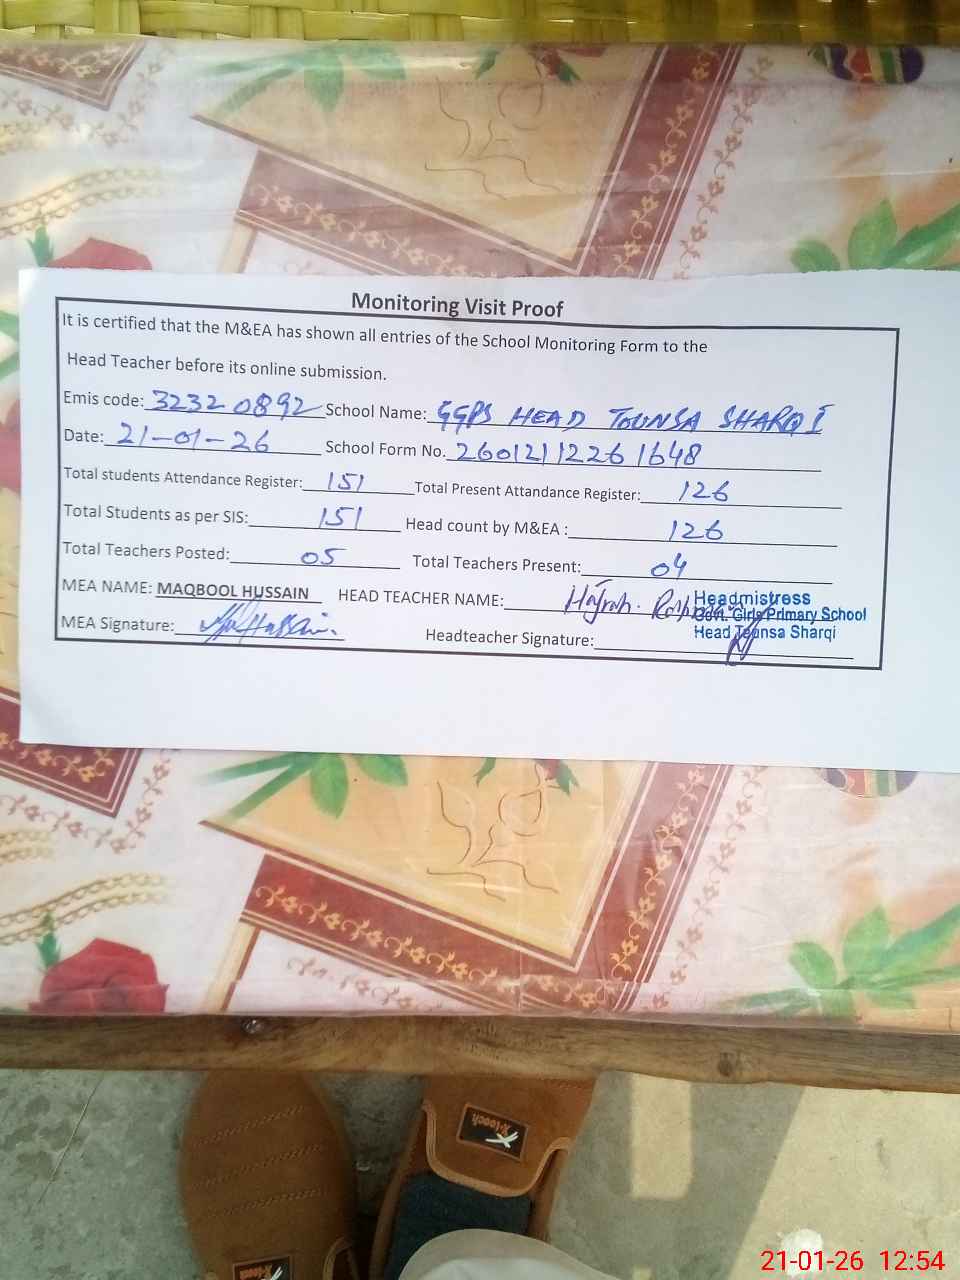 Monitoring Visit Proof
It is certified that the M&EA has shown all entries of the School Monitoring Form to the
Head Teacher before its online submission.
Emis code: 32320892 School Name: GGPS HEAD TOUNSA SHARQI
Date: 21-01-26 School Form No. 2601211226 1648
Total students Attendance Register: 151 Total Present Attandance Register: 126
Total Students as per SIS: 151 Head count by M&EA : 126
Total Teachers Posted: 05 Total Teachers Present: 04
MEA NAME: MAQBOOL HUSSAIN HEAD TEACHER NAME: Hajrah
Headmistress
Govt. Girls Primary School
Head Tounsa Sharqi
MEA Signature: Headteacher Signature:
X-looch
X-looch
21-01-26 12:54